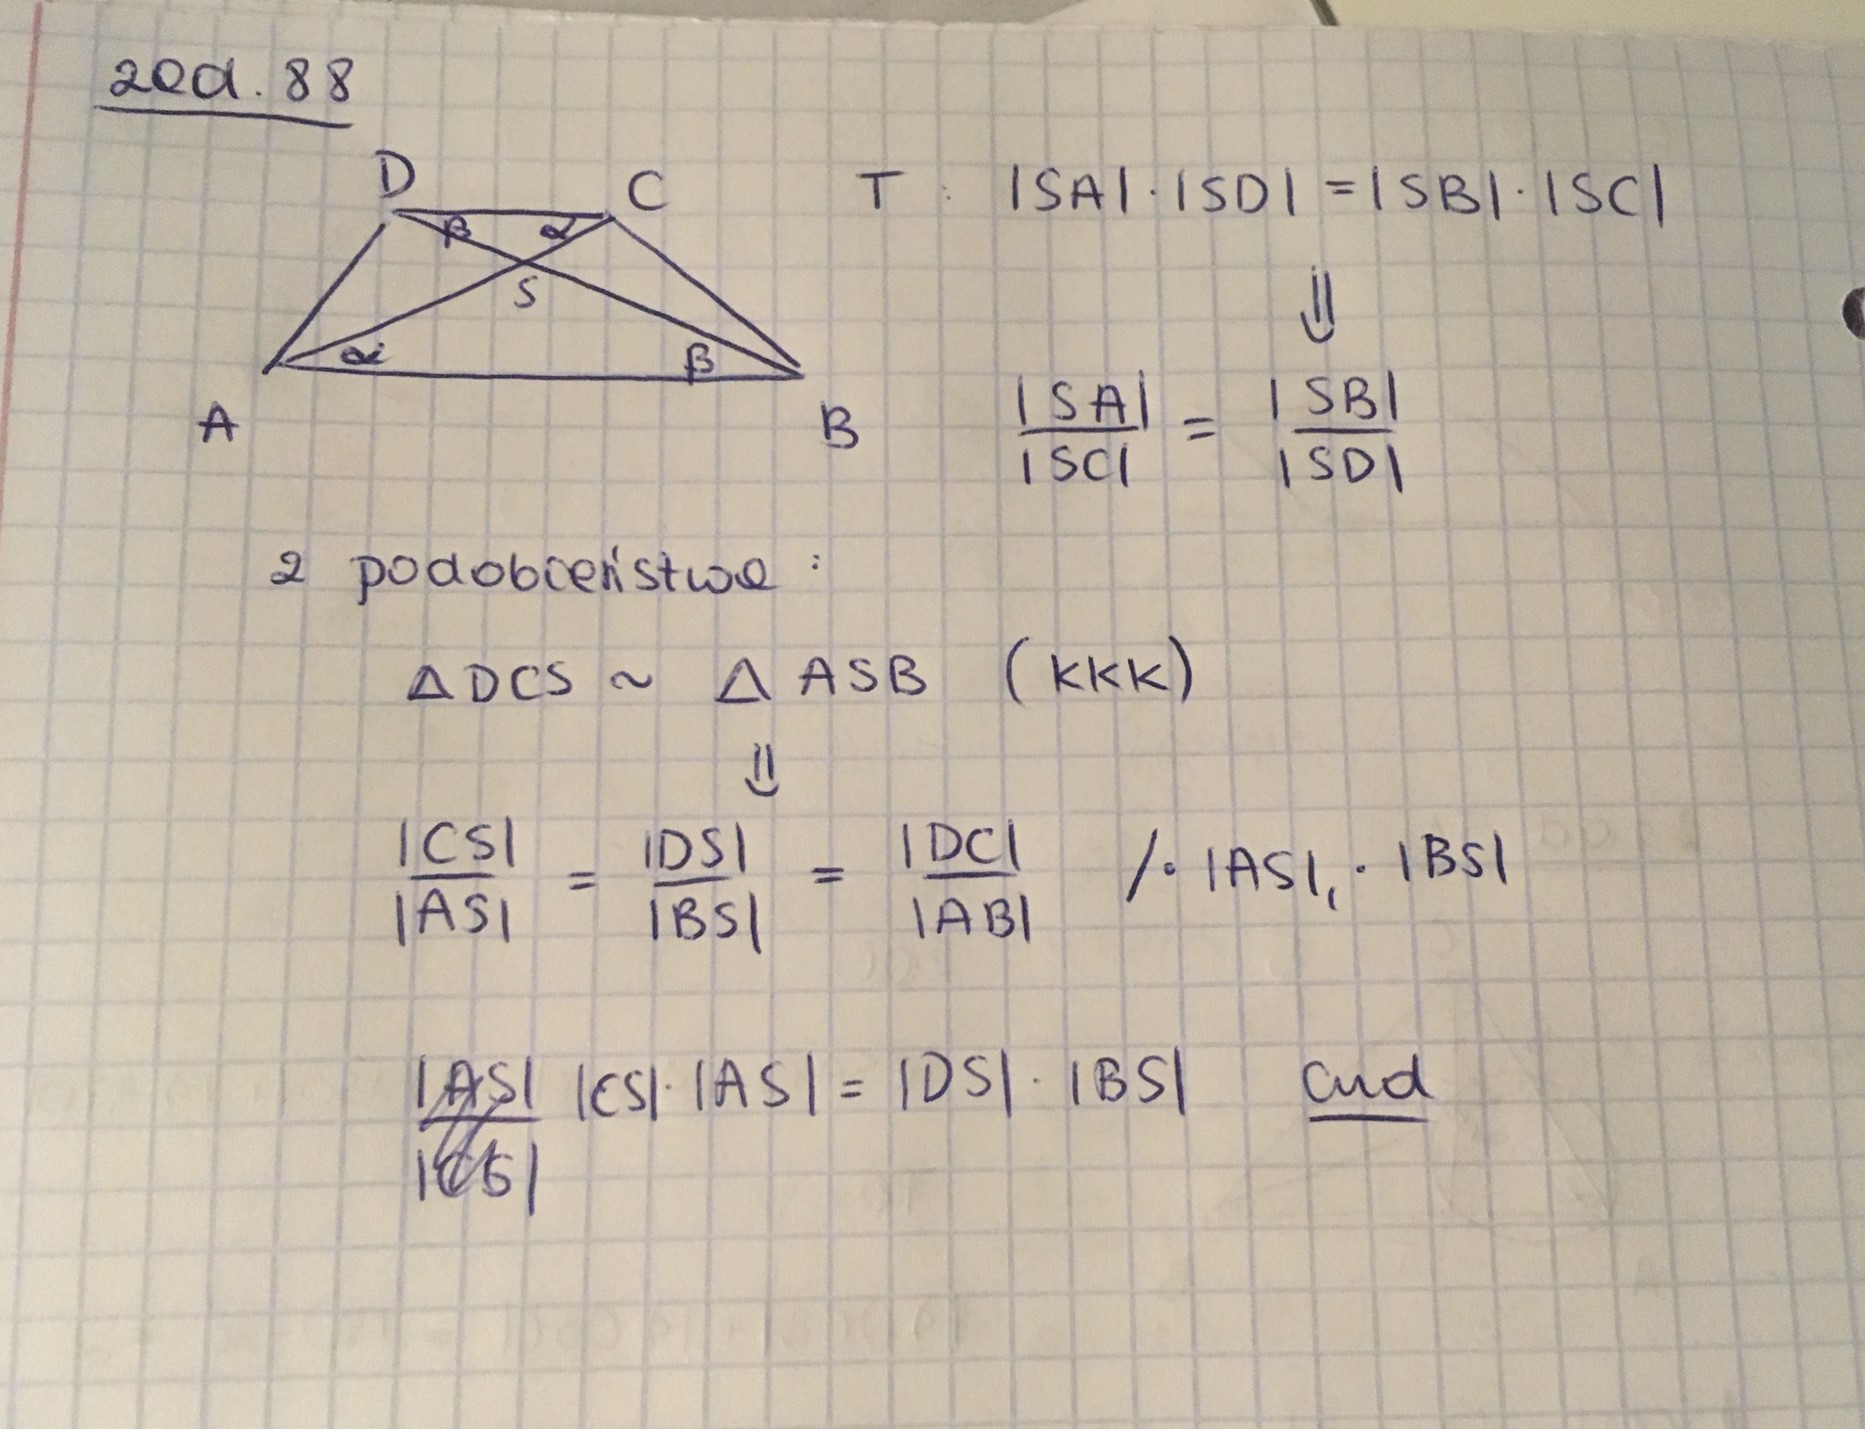 zad. 88
D C T : |SA| · |SD| = |SB| · |SC|
β α
S
⇓
α β
A B
|SA| / |SC| = |SB| / |SD|
z podobieństwa :
Δ DCS ~ Δ ASB (KKK)
⇓
|CS| / |AS| = |DS| / |BS| = |DC| / |AB| /· |AS|, · |BS|
|CS| · |AS| = |DS| · |BS| cnd